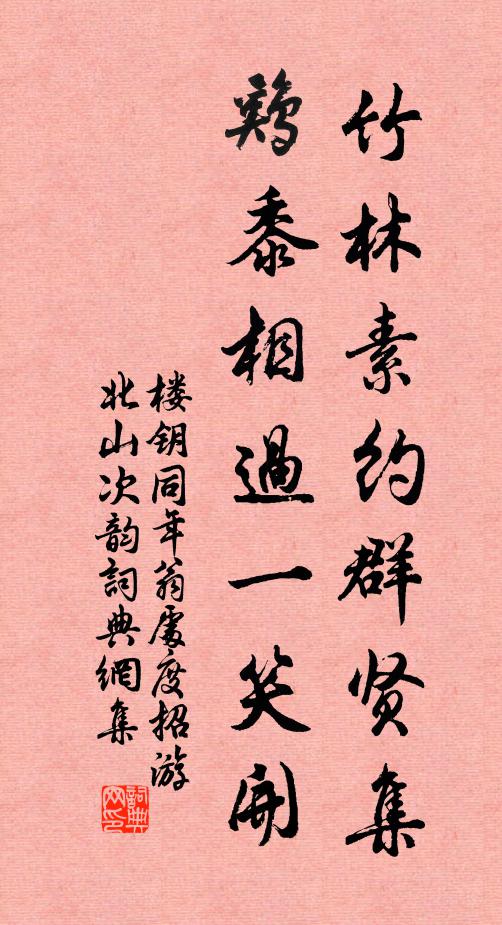 竹林素约群贤集
鸡黍相過一笑開
楼钥同年翁處度招游
北山次韵詞典網集
詞典
网印